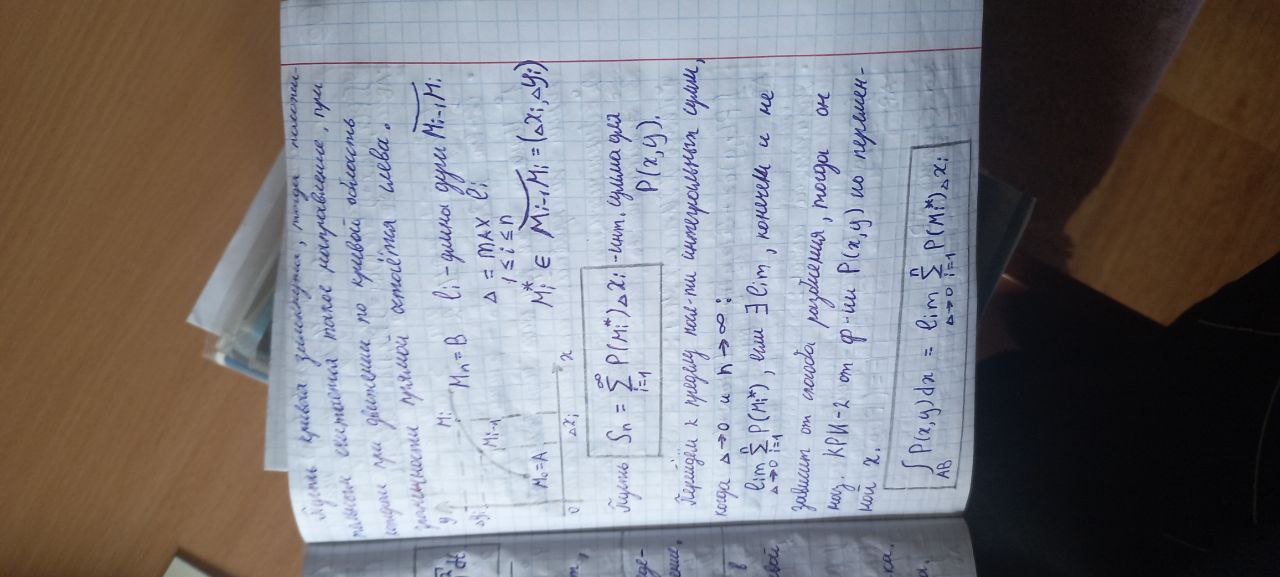 Пусть кривая замкнутая, тогда положи-
тельным считается такое направление, при
котором при движении по кривой область
остаётся слева.
y
Δyi
M₀=A
Mi-1
Mi
Mn=B
Δxi
x
0
li - длина дуги M͡i-1Mi
Δ = max li
1≤i≤n
Mi* ∈ M͡i-1Mi = (Δxi, Δyi)
Пусть Sn = ∑_{i=1}^{∞} P(Mi*) Δxi - инт. сумма для
P(x,y).
Перейдем к пределу интегральных сумм,
когда Δ→0 и n→∞:
lim_{Δ→0} ∑_{i=1}^{n} P(Mi*), если ∃ lim, конечен и не
зависит от способа разбиения, тогда он
наз. КРИ-2 от ф-ии P(x,y) по перемен-
ной x.
∫_{AB} P(x,y)dx = lim_{Δ→0} ∑_{i=1}^{n} P(Mi*) Δxi